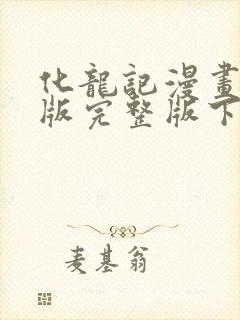 化龍記漫畫
版完整版下
麦基翁